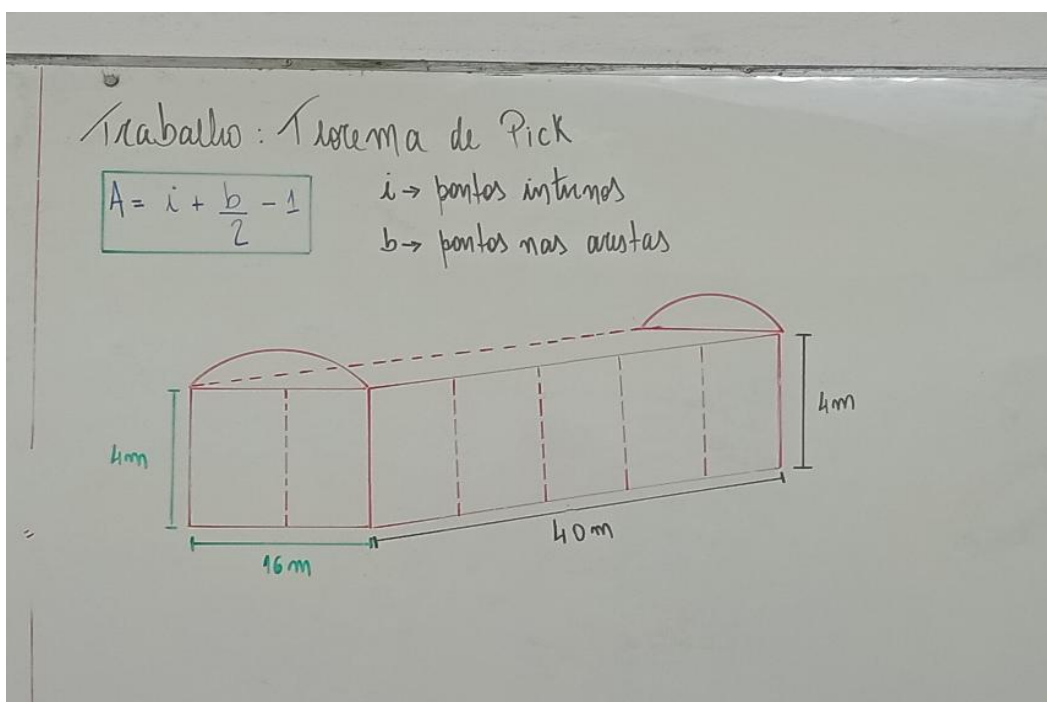 Trabalho: Teorema de Pick
A = i + b/2 - 1
i → pontos internos
b → pontos nas arestas
4m
4m
40m
16m